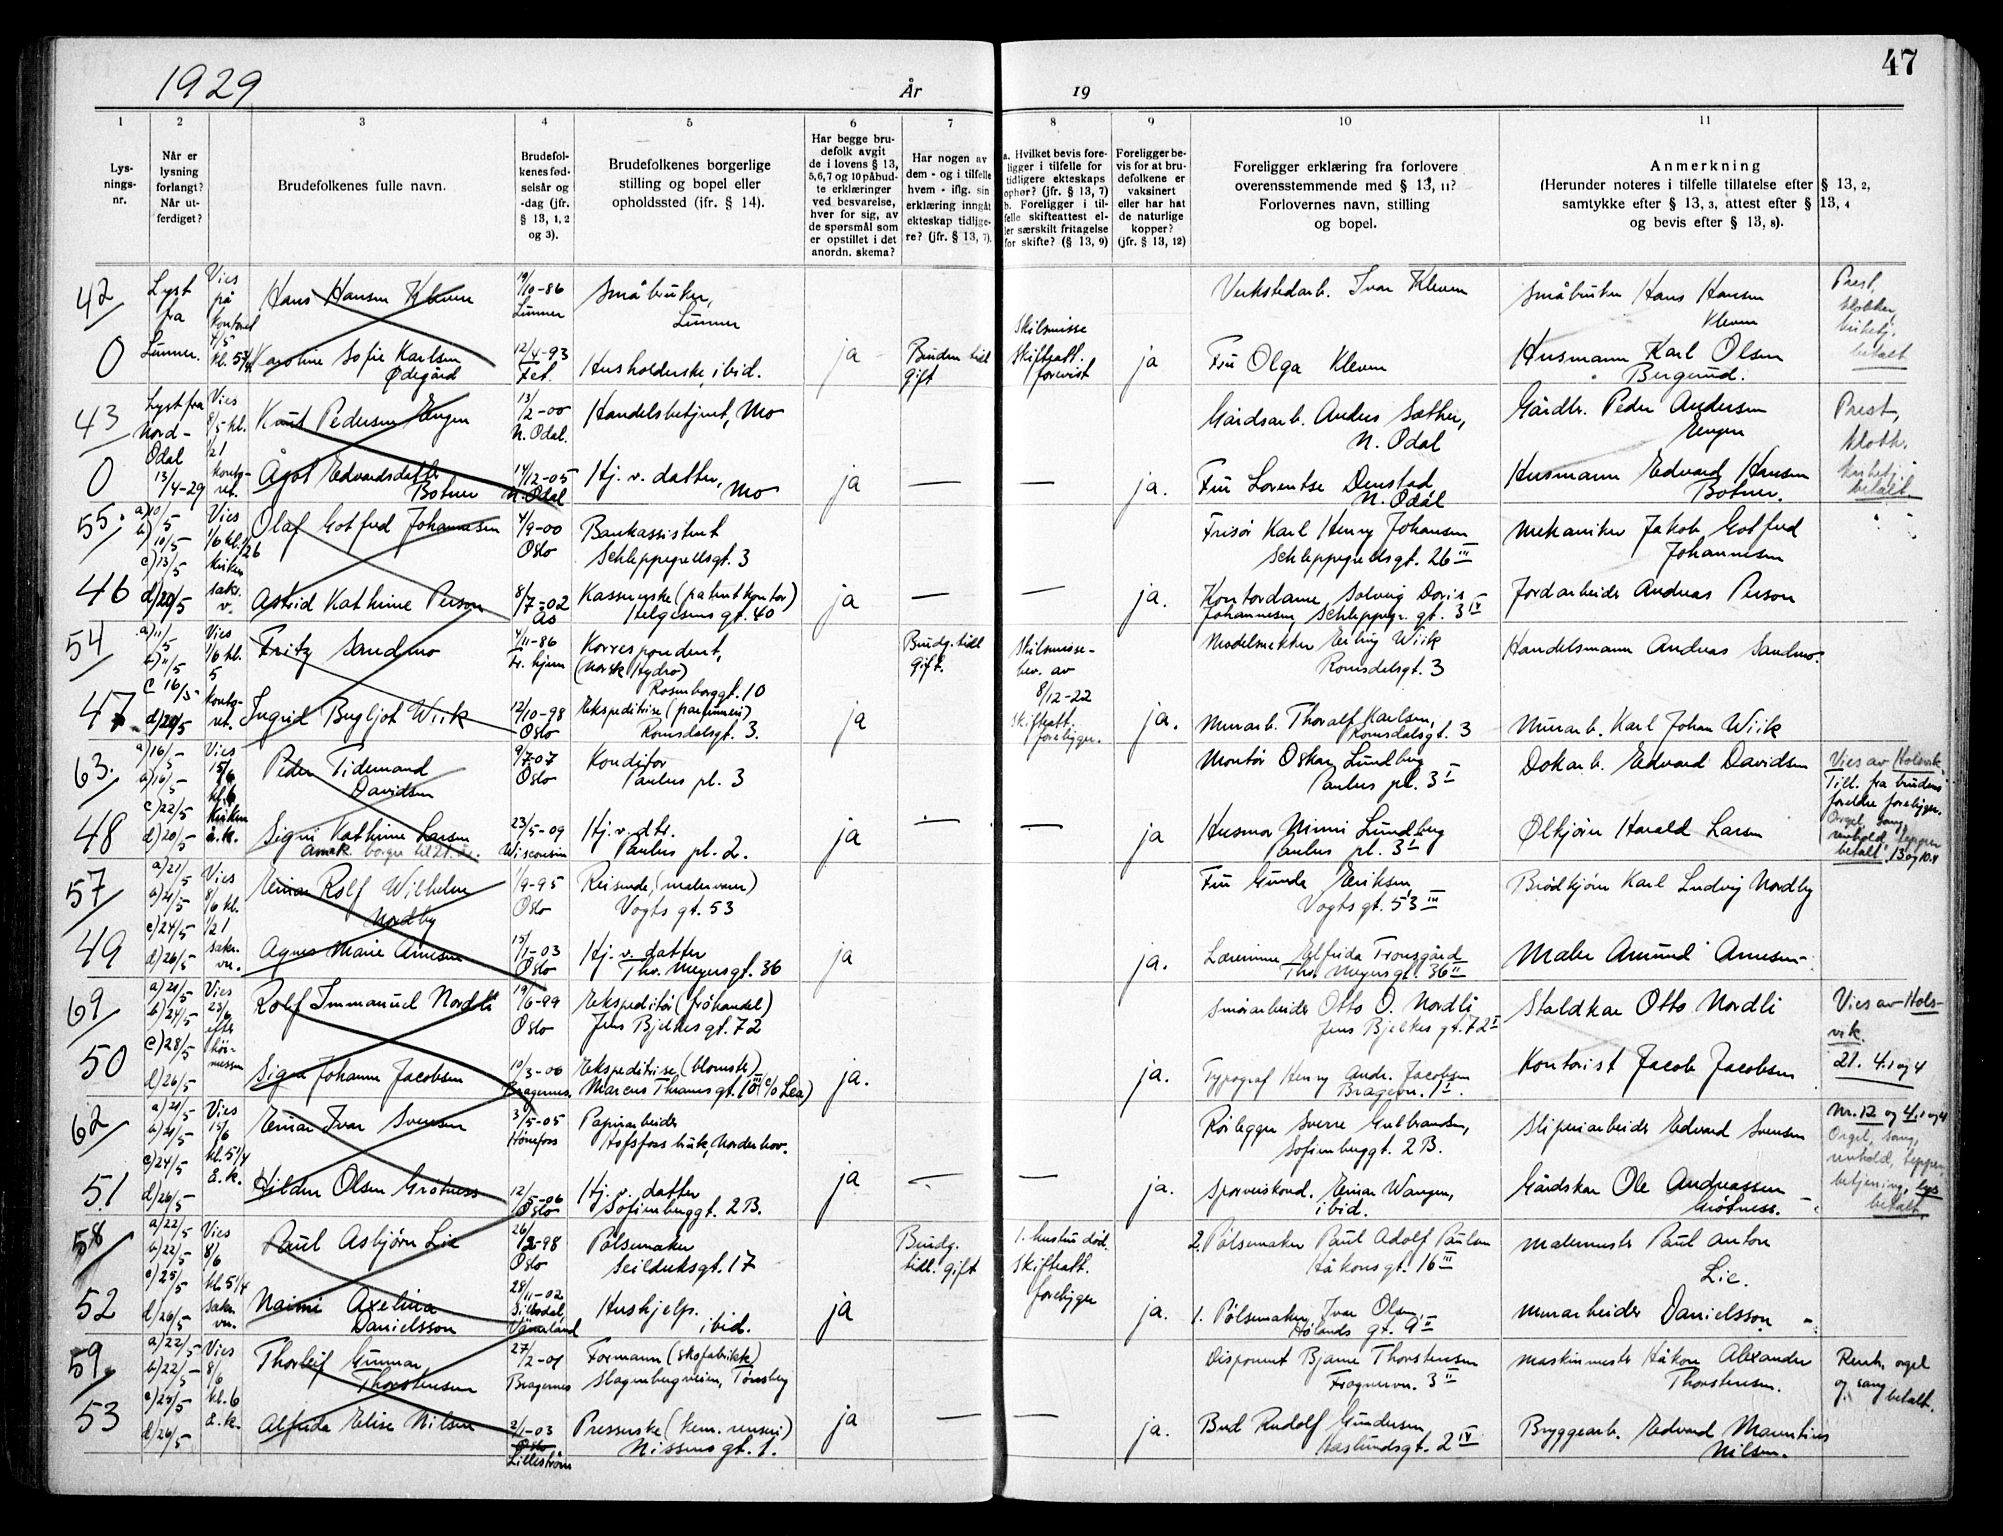 1929
År
19
47
1
2
3
4
5
6
7
8
9
10
11
Lys-
nings-
nr.
Når er
lysning
forlangt?
Når ut-
ferdiget?
Brudefolkenes fulle navn.
Brudefol-
kenes fød-
selsår og
-dag (jfr.
§ 13, 1, 2
og 3).
Brudefolkenes borgerlige
stilling og bopel eller
opholdssted (jfr. § 14).
Har begge bru-
defolk avgit
de i lovens § 13,
5,6,7 og 10 påbud-
te erklæringer
ved besvarelse,
hver for sig, av
de spørsmål som
er opstillet i det
anordn. skema?
Har nogen av
dem - og i tilfelle
hvem - iflg. sin
erklæring inngåt
ekteskap tidlige-
re? (jfr. § 13, 7).
a. Hvilket bevis fore-
ligger i tilfelle for
tidligere ekteskaps
ophør? (jfr. § 13, 7)
b. Foreligger i til-
felle skifteattest el-
ler særskilt fritagelse
for skifte? (§ 13, 9)
Foreligger be-
vis for at bru-
defolkene er
vaksinert
eller har hat
de naturlige
kopper?
(jfr. § 13, 12)
Foreligger erklæring fra forlovere
overensstemmende med § 13, 11?
Forlovernes navn, stilling
og bopel.
Anmerkning
(Herunder noteres i tilfelle tillatelse efter § 13, 2,
samtykke efter § 13, 3, attest efter § 13, 4
og bevis efter § 13, 8).
42
0
Lyst
fra
Lunner.
Vies
på
kontoret
4/5
Hans Hansen Kleven
19/10-86
Lunner
Småbruker,
Lunner
Verkstedarb. Ivar Kleven
Småbruker Hans Hansen
Kleven
Prest,
klokker,
kirketj.
betalt
Karoline Sofie Karlsen
Ødegård
12/4-93
Fet.
Husholderske, ibid.
ja
Bruden tidl
gift
Skilsmisse
Skifteatt.
forevist
ja
Fru Olga Kleven
Husmann Karl Olsen
Bergerud.
43
0
Lyst fra
Nord-
Odal
13/4-29
Vies
8/5 kl.
1/21
konto-
ret.
Knut Pedersen Engen
13/2-00
N. Odal.
Handelsbetjent, Mo
Gårdsarb. Anders Sæther,
N. Odal
Gårdbr. Peder Andersen
Engen
Prest,
klokk.
kirketj.
betalt.
Ågot Edvardsdatter
Botner
14/12-05
N. Odal
Hj. v. datter, Mo
ja
—
—
ja.
Fru Lorentse Denstad
N. Odal
Husmann Edvard Hansen
Botner.
55.
46
a) 10/5
b) 10/5
c) 13/5
d) 20/5
Vies
1/6 kl.
kirken
sakr.
v.
Olaf Gotfred Johannesen
4/9-00
Oslo
Bankassistent
Schleppegrellsgt. 3
Frisør Karl Henry Johansen
Schleppegrellsgt. 26 III
Mekaniker Jakob Gotfred
Johannesen
Astrid Kathrine Person
8/7-02
Ås
Kassererske (patentkontor)
Helgesens gt. 40
ja
—
—
ja.
Kontordame Solveig Doris
Johannesen, Schleppegr. gt. 3 IV
Jordarbeider Andreas Person
54
47
a) 11/5
b) 11/5
c) 16/5
d) 20/5
Vies
1/6 kl.
5
konto-
ret.
Fritz Sandmo
4/11-86
Tr.hjem
Korrespondent,
(Norsk Hydro)
Rosenborggt. 10
Brudg. tidl
gift.
Skilsmisse-
bev. av
8/12-22
Skifteatt.
foreligger.
Modelsnekker Erling Wiik
Romsdalsgt. 3
Handelsmann Andreas Sandmo.
Ingrid Bergljot Wiik
12/10-98
Oslo
Ekspeditrise (parfumeri)
Romsdalsgt. 3.
ja
ja.
Murarb. Thoralf Karlsen,
Romsdalsgt. 3
Murarb. Karl Johan Wiik
63.
48
a) 16/5
b) 16/5
c) 22/5
d) 20/5
Vies
15/6
kl. 6
Kirken
å.k.
Peder Tidemand
Davidsen
9/7-07
Oslo
Konditor
Paulus pl. 3
Montør Oskar Lundberg
Paulus pl. 3 I
Dokarb. Edvard Davidsen
Vies av Holsvik.
Till. fra brudens
foreldre foreligger.
Orgel, sang
renhold, tepper
betalt. 13 og 10.4
Signi Kathrine Larsen
Amrk. borger til 21. år.
23/5-09
Wisconsin
Hj. v. dtr.
Paulus pl. 2.
ja
—
—
ja
Husmor Mimi Lundberg
Paulus pl. 3 I
Ølkjører Harald Larsen
57
49
a) 21/5
b) 21/5
c) 24/5
d) 26/5
Vies
8/6 kl.
1/21
sakr.
Einar Rolf Wilhelm
Nordby
1/9-95
Oslo
Reisende, (malervarer)
Vogts gt. 53
Fru Gunda Eriksen,
Vogts gt. 53 III
Brødkjører Karl Ludvig Nordby
Agnes Marie Arnesen
15/1-03
Oslo
Hj. v. datter
Thv. Meyersgt. 36
ja
ja.
Lærerinne Elfrida Tronsgård
Thv. Meyersgt. 36 II
Maler Amund Arnesen
69
50
a) 21/5
b) 24/5
c) 28/5
d) 26/5
Vies
23/6
efter
høi-
messen
Rolf Immanuel Nordli
19/6-99
Oslo
Ekspeditør (frøhandel)
Jens Bjelkes gt. 72
Smørarbeider Otto O. Nordli
Jens Bjelkes gt. 72 I
Staldkar Otto Nordli
Vies av Hols-
vik.
21. 4.1 og 4
Signe Johanne Jacobsen
10/3-00
Bragernes.
Ekspeditrise (blomster)
Marcus Thranes gt. 10 III (c/o Lea)
ja.
ja.
Typograf Henry Andr. Jacobsen
Bragevn. 1 I.
Kontorist Jacob Jacobsen
62
51
a) 21/5
b) 21/5
c) 24/5
d) 26/5
Vies
15/6
kl. 5 1/4
å.k.
Einar Ivar Svensen
3/5-05
Hønefoss
Papirarbeider
Hofsfoss bruk, Norderhov.
Rørlegger Sverre Gulbrandsen,
Sofienberggt. 2 B.
Sliperiarbeider Edvard Svensen
Nr. 12 og 4.1 og 4
Orgel, sang,
renhold, tepper,
betjening, lys
betalt.
Hildur Olsen Grøtness
12/5-06
Oslo
Hj. v. datter
Sofienberggt. 2 B.
ja
—
—
ja.
Sporveiskond. Einar Wangen,
ibid.
Gårdskar Ole Andreassen
Grøtness.
58
52
a) 22/5
b) 22/5
c) 25/5
d) 26/5
Vies
8/6
kl. 5 1/4
sakr.
Paul Asbjørn Lie
26/12-98
Oslo
Pølsemaker
Seilduksgt. 17
Brudg.
tidl. gift
1. hustru død.
Skifteatt.
foreligger
2. Pølsemaker Paul Adolf Paulsen
Håkonsgt. 16 III
Malermester Paul Anton
Lie.
Naimi Axelina
Danielsson
28/11-02
Vänerland
Hushjelp.
ibid.
ja
ja.
1. Pølsemaker Ivar Olsen,
Hølands gt. 9 II
Murarbeider Danielsson
59.
53
a) 22/5
b) 22/5
c) 25/5
d) 26/5
Vies
8/6
kl. 6
å.k.
Thorleif Gunnar
Thorstensen
27/2-01
Bragernes
Formann (skofabrikk)
Slagenbergveien, Tønsberg
Disponent Bjarne Thorstensen
Frognervn. 3 II
Maskinmester Håkon Alexander
Thorstensen.
Renh. orgel
og sang betalt.
Alfrida Elise Nilsen
2/1-03
Oslo
Lilleström
Presserske (kem. renseri)
Nissens gt. 1.
ja
—
—
ja.
Bud Rudolf Gundersen
Haslundsgt. 2 IV
Bryggearb. Edvard Mauritius
Nilsen.